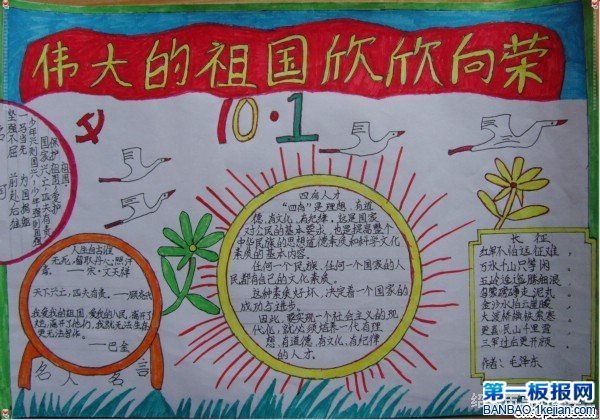 伟大的祖国欣欣向荣
10·1
祖国:
保护祖国,爱护
国家兴亡,匹夫有责
少年兴则国兴,少年强则国强
一马当先 为国捐躯
坚强不屈 前赴后继
人生自古谁
无死,留取丹心照汗
青。——宋·文天祥
天下兴亡,匹夫有责。——顾炎武
我爱我的祖国,爱我的人民,离开了
她,离开了他们,我就无法生存,
更无法写作。
——巴金
名人名言
四有人才
“四有”是理想、有道
德、有文化、有纪律,这是国家
对公民的基本要求,也是提高整个
中华民族的思想道德素质和科学文化
素质的基本内容。
任何一个民族、任何一个国家的人
民都有自己的文化素质。
这种素质好坏,决定着一个国家的
成功与进步。
因此,要实现一个社会主义的现
代化,就必须培养一代有理
想、有道德、有文化、有纪律
的人才。
长征
红军不怕远征难,
万水千山只等闲
五岭逶迤腾细浪
乌蒙磅礴走泥丸
金沙水拍云崖暖
大渡桥横铁索寒
更喜岷山千里雪
三军过后尽开颜
作者:毛泽东
第一板报网
BANBAO.1kejian.com